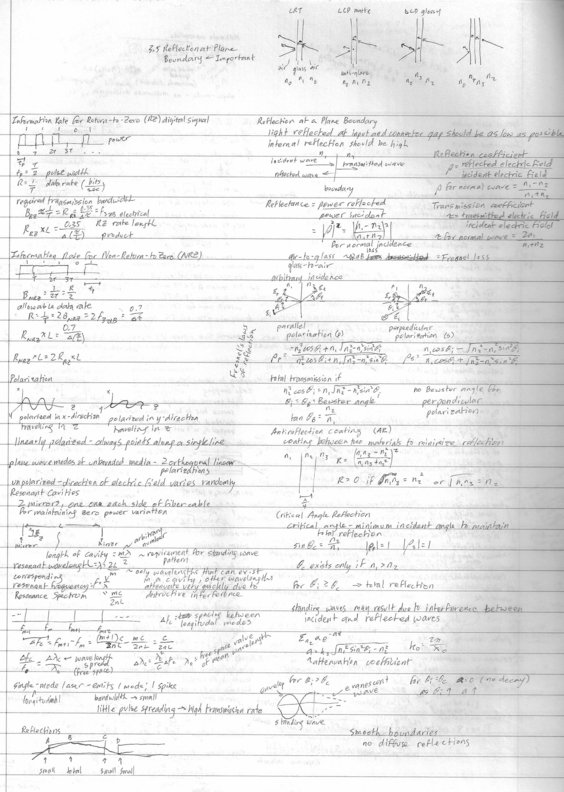 LRT
LCD matte
LCD glossy
3.5 Reflection at Plane
Boundary ← Important
air glass air
n0 n1 n0
anti-glare
n0 n1 n2
n0 n2
Information Rate for Return-to-Zero (RZ) digital signal
1 1 1 0 1
power
T 2T 3T
tp = T/2 pulse width
R = 1/T data rate (bits/sec)
required transmission bandwidth
electrical
RRZ × L = 0.35/Δ(τ/L) RZ rate length
product
Information Rate for Non-Return-to-Zero (NRZ)
T 2T 3T
BNRZ = 1/2T = R/2
allowable data rate
R = 1/T = 2BNRZ = 2f3dB = 0.7/Δτ
RNRZ × L = 0.7/Δ(τ/L)
RNRZ × L = 2RRZ L
Polarization
polarized in x-direction
traveling in z
polarized in y-direction
traveling in z
linearly polarized - always points along a single line
plane wave modes of unbounded media - 2 orthogonal linear
polarizations
unpolarized - direction of electric field varies randomly
Resonant Cavities
2 mirrors, one on each side of fiber cable
for maintaining zero power variation
mirror
mirror
arbitrary
number
length of cavity = mλ/2 ← requirement for standing wave
pattern
resonant wavelength = λ = 2L/m
only wavelengths that can exist
corresponding
in a cavity, other wavelengths
resonant frequency = f = v/λ
attenuate very quickly due to
destructive interference
Resonance Spectrum = mc/2nL
fm-1 fm fm+1
Δfc = spacing between
longitudal modes
Δfc = fm+1 - fm = (m+1)c/2nL - mc/2nL = c/2nL
Δfc/f0 = Δλc/λ0 ← wavelength
spread
(free space)
Δλc = λ0²/c Δfc
λ0: free space value
of mean wavelength
single-mode laser - emits 1 mode, 1 spike
longitudinal
bandwidth → small
little pulse spreading → high transmission rate
Reflections
A B C D
small total small small
Reflection at a Plane Boundary
light reflected at input and connector gap should be as low as possible
internal reflection should be high
incident wave
n1 n2
transmitted wave
reflected wave
boundary
Reflection coefficient
ρ = reflected electric field/incident electric field
ρ for normal wave = n1-n2/n1+n2
Reflectance = power reflected/power incident
= |ρ|² = |n1-n2/n1+n2|²
for normal incidence
Transmission coefficient
τ = transmitted electric field/incident electric field
τ for normal wave = 2n1/n1+n2
air-to-glass
glass-to-air
loss
= Fresnel loss
arbitrary incidence
Fresnel's laws
of reflection
parallel
polarization (p)
perpendicular
polarization (s)
ρp = -n2²cosθi + n1√n2²-n1²sin²θi / n2²cosθi + n1√n2²-n1²sin²θi
ρs = n1cosθi - √n2²-n1²sin²θi / n1cosθi + √n2²-n1²sin²θi
total transmission if
n2²cosθi = n1√n2²-n1²sin²θi
θi = θB = Bewster angle
tan θB = n2/n1
no Bewster angle for
perpendicular
polarization
Antireflection coating (AR)
coating between two materials to minimize reflection
n1 n2 n3
R = |n1n3-n2²/n1n3+n2²|²
R = 0 if n1n3 = n2² or √n1n3 = n2
λ/4
Critical Angle Reflection
critical angle - minimum incident angle to maintain
total reflection
sinθc = n2/n1 |ρp| = 1 |ρs| = 1
θc exists only if n1 > n2
for θi ≥ θc → total reflection
standing waves may result due to interference between
incident and reflected waves
En2 α e^-αz
α = k0√n1²sin²θi - n2²
k0 = 2π/λ0
attenuation coefficient
envelop for θi > θc
evanescent
wave
standing wave
for θi = θc α = 0 (no decay)
as θi ↑ α ↑
smooth boundaries
no diffuse reflections